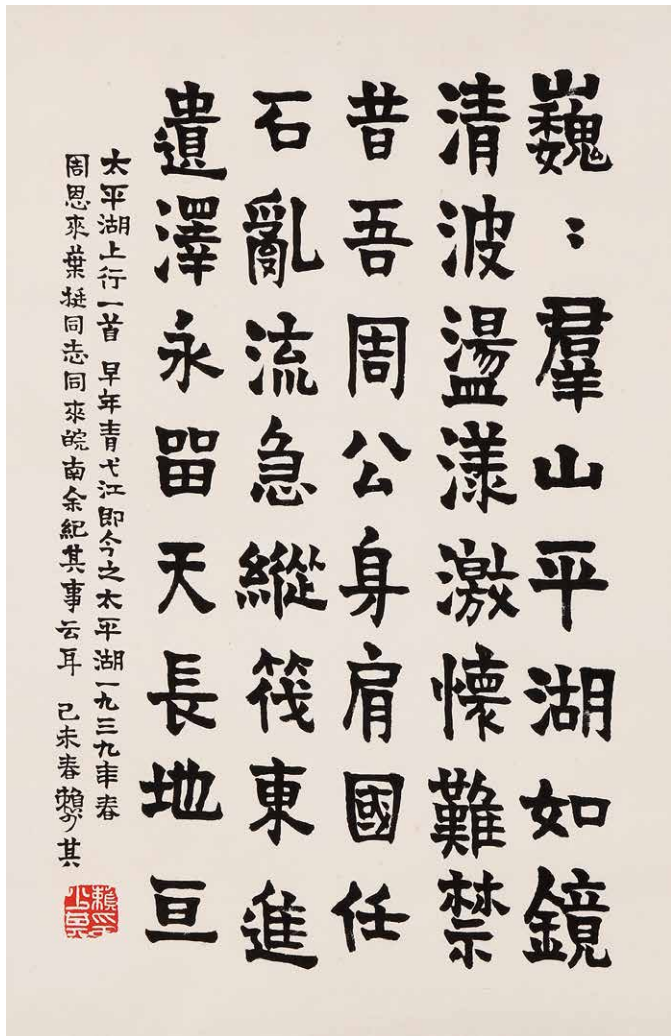 巍：羣山平湖如鏡
清波盪漾激懷難禁
昔吾周公身肩國任
石亂流急縱筏東進
遺澤永留天長地亘
太平湖上行一首 早年青弋江即今之太平湖一九三九年春
周恩來葉挺同志同來皖南余紀其事云耳 己未春賴少其